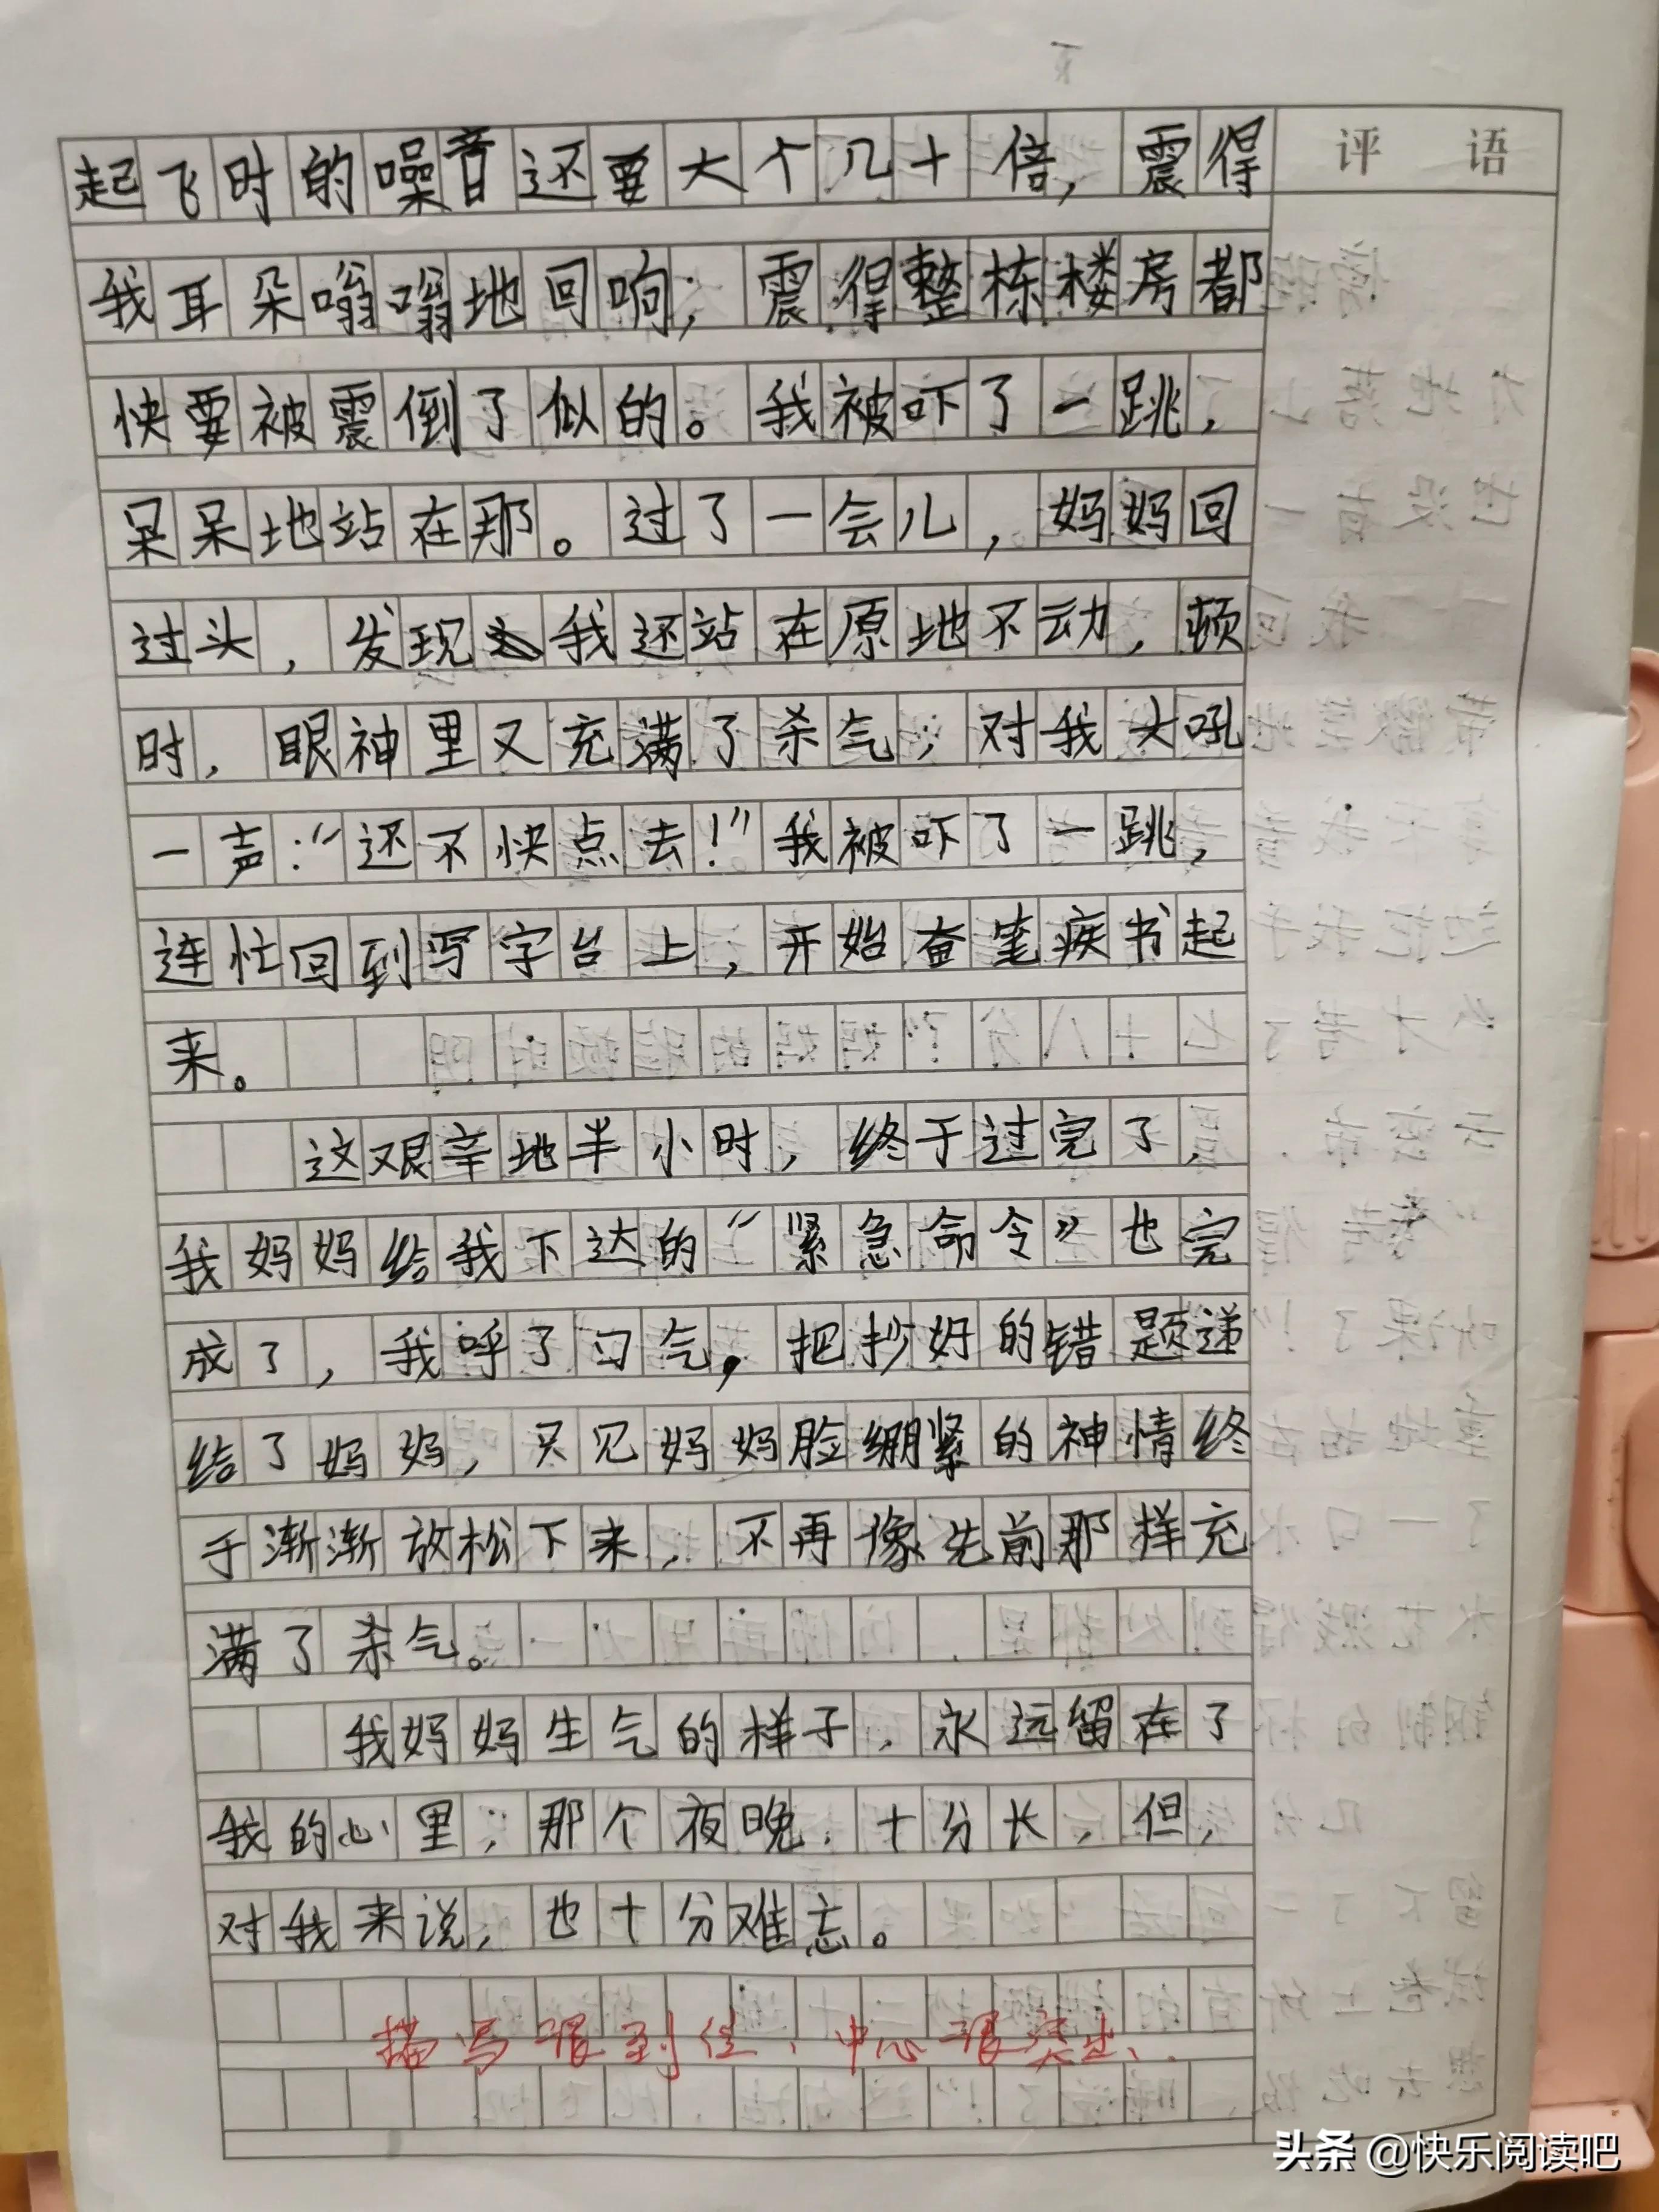 起飞时的噪音还要大个几十倍，震得
评 语
我耳朵嗡嗡地回响；震得整栋楼房都
快要被震倒了似的。我被吓了一跳，
呆呆地站在那。过了一会儿，妈妈回
过头，发现我还站在原地不动，顿
时，眼神里又充满了杀气，对我大吼
一声：“还不快点去！”我被吓了一跳，
连忙回到写字台上，开始奋笔疾书起
来。
这艰辛地半小时，终于过完了，
我妈妈给我下达的“紧急命令”也完
成了，我呼了口气，把抄好的错题递
给了妈妈，只见妈妈脸绷紧的神情终
于渐渐放松下来，不再像先前那样充
满了杀气。
我妈妈生气的样子，永远留在了
我的心里；那个夜晚，十分长，但，
对我来说，也十分难忘。
描写很到位，中心很突出。
头条 @快乐阅读吧